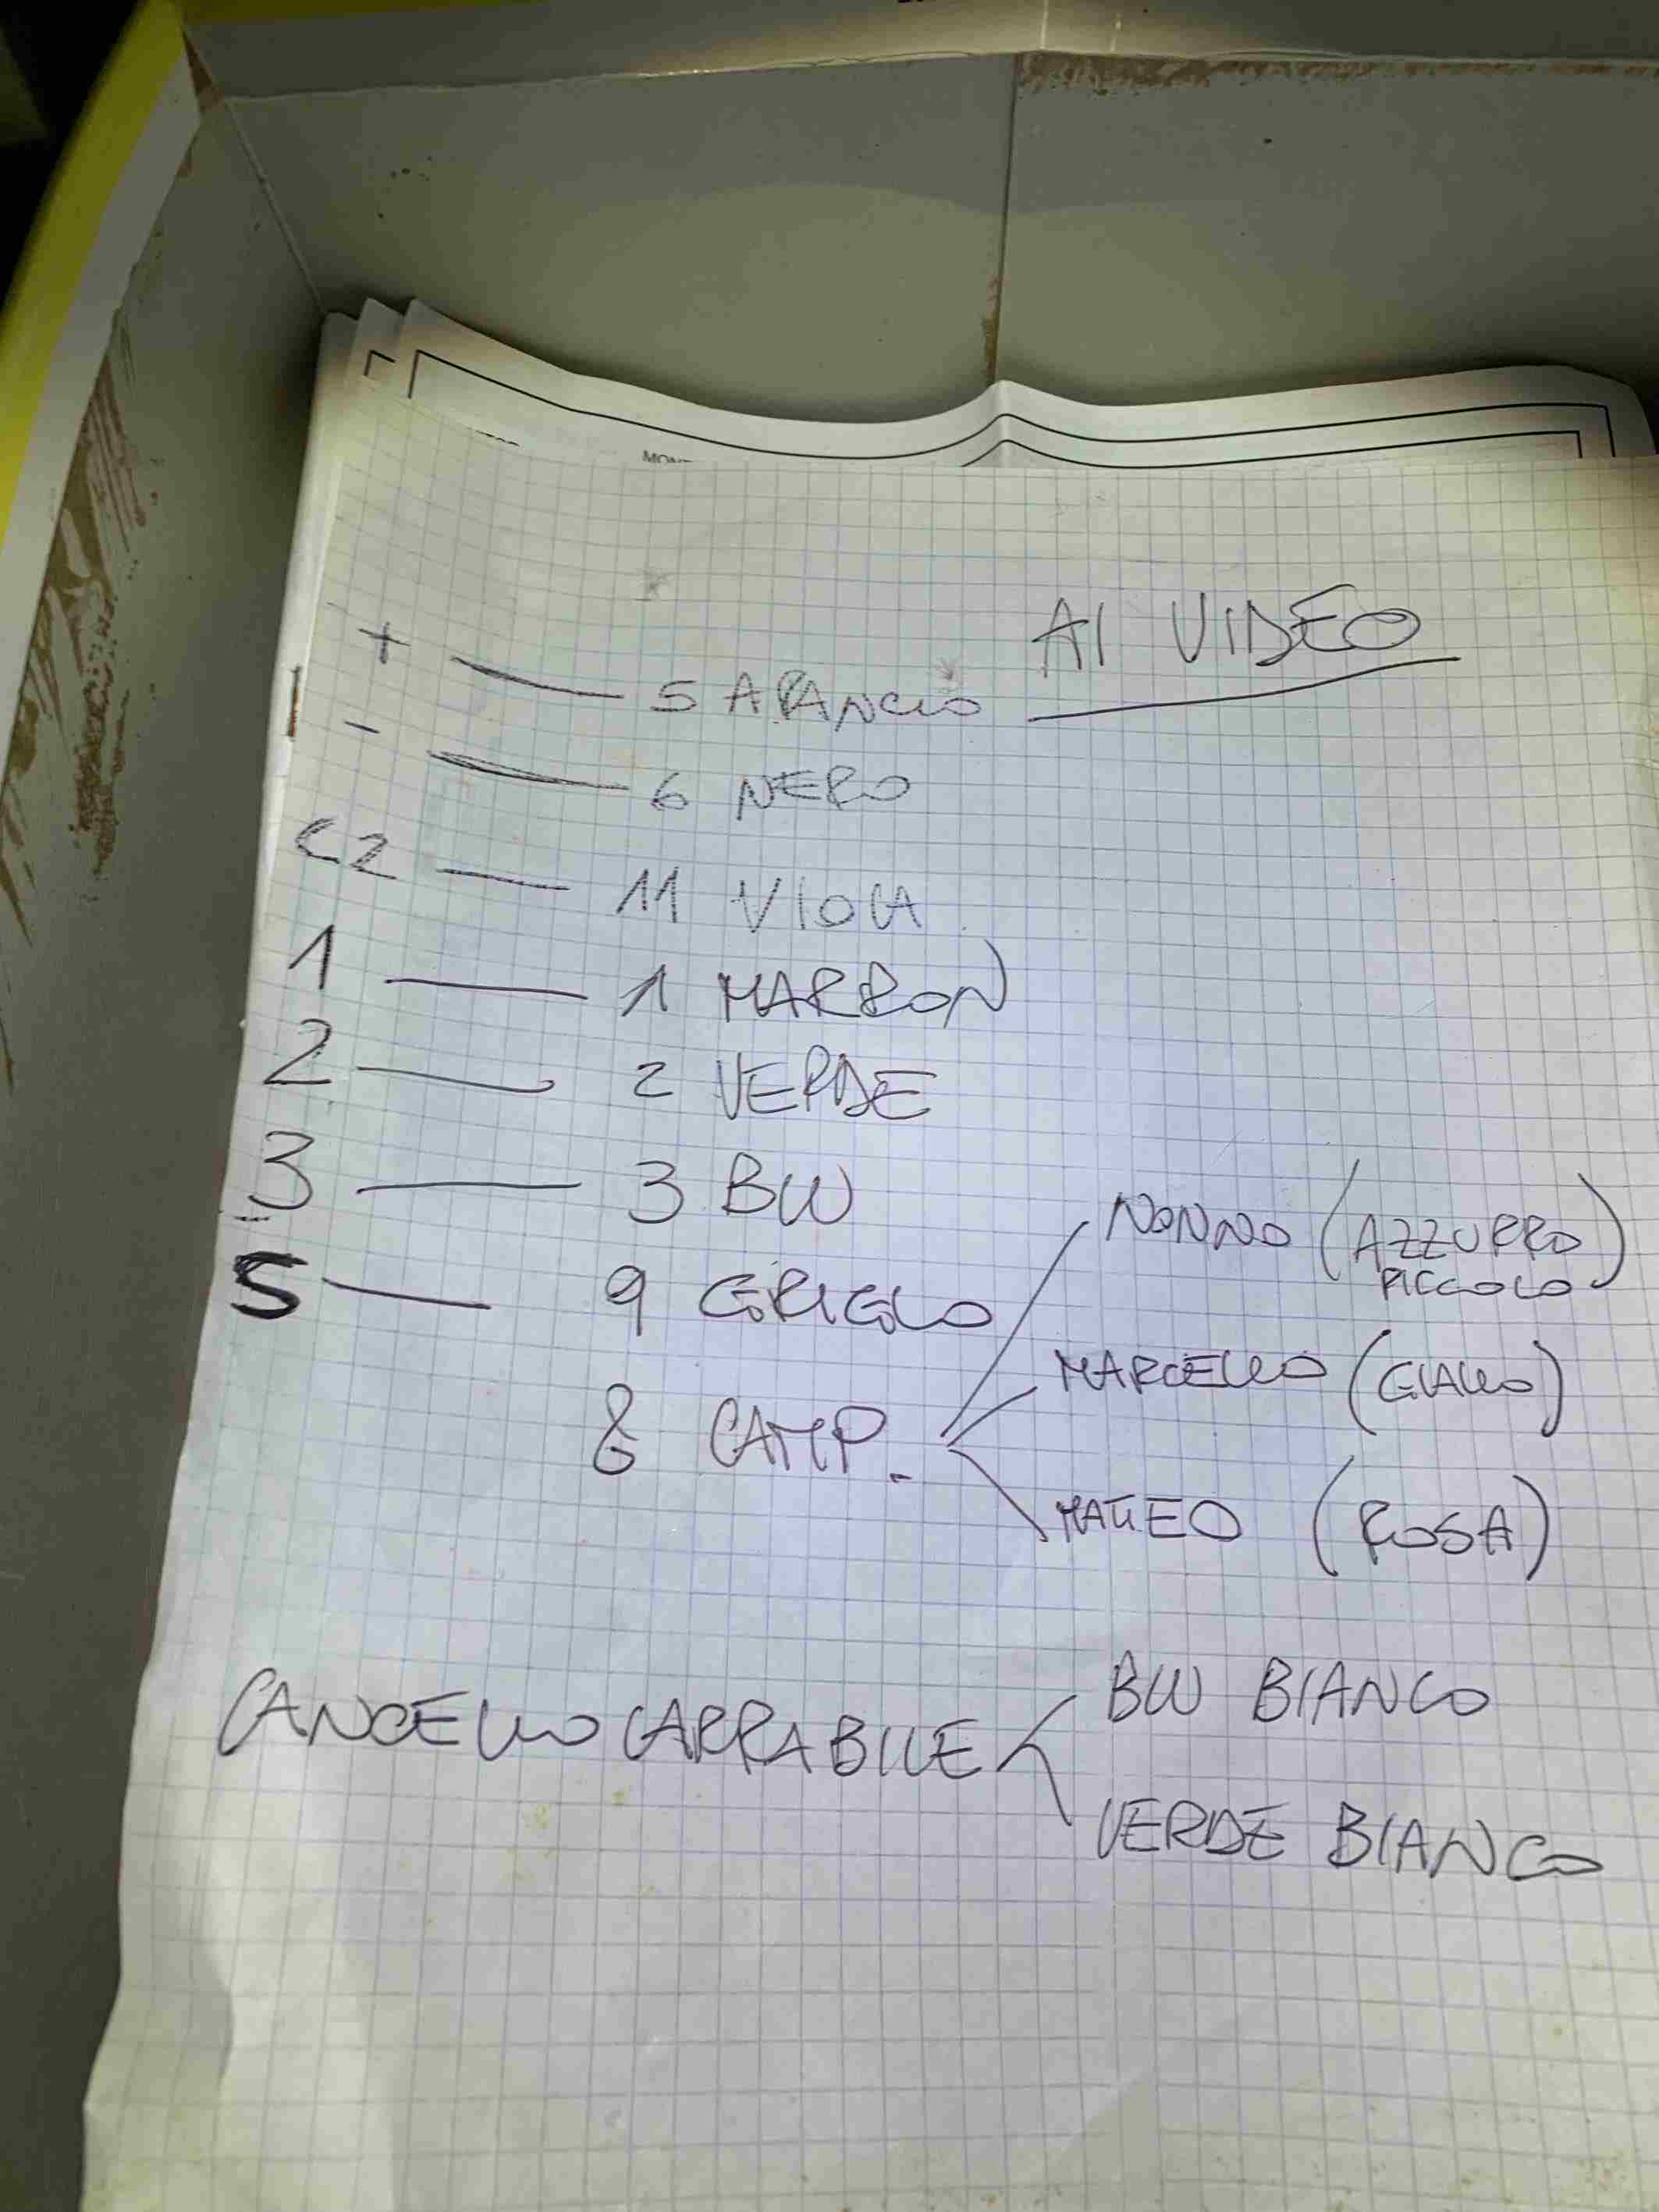 AI VIDEO
+ — 5 ARANCIO
- — 6 NERO
C2 — 11 VIOLA
1 — 1 MARRON
2 — 2 VERDE
3 — 3 BLU
S — 9 GRIGIO
8 CAMP.
NONNO (AZZURRO PICCOLO)
MARCELLO (GIALLO)
MATTEO (ROSA)
CANCELLO CARRABILE
BLU BIANCO
VERDE BIANCO